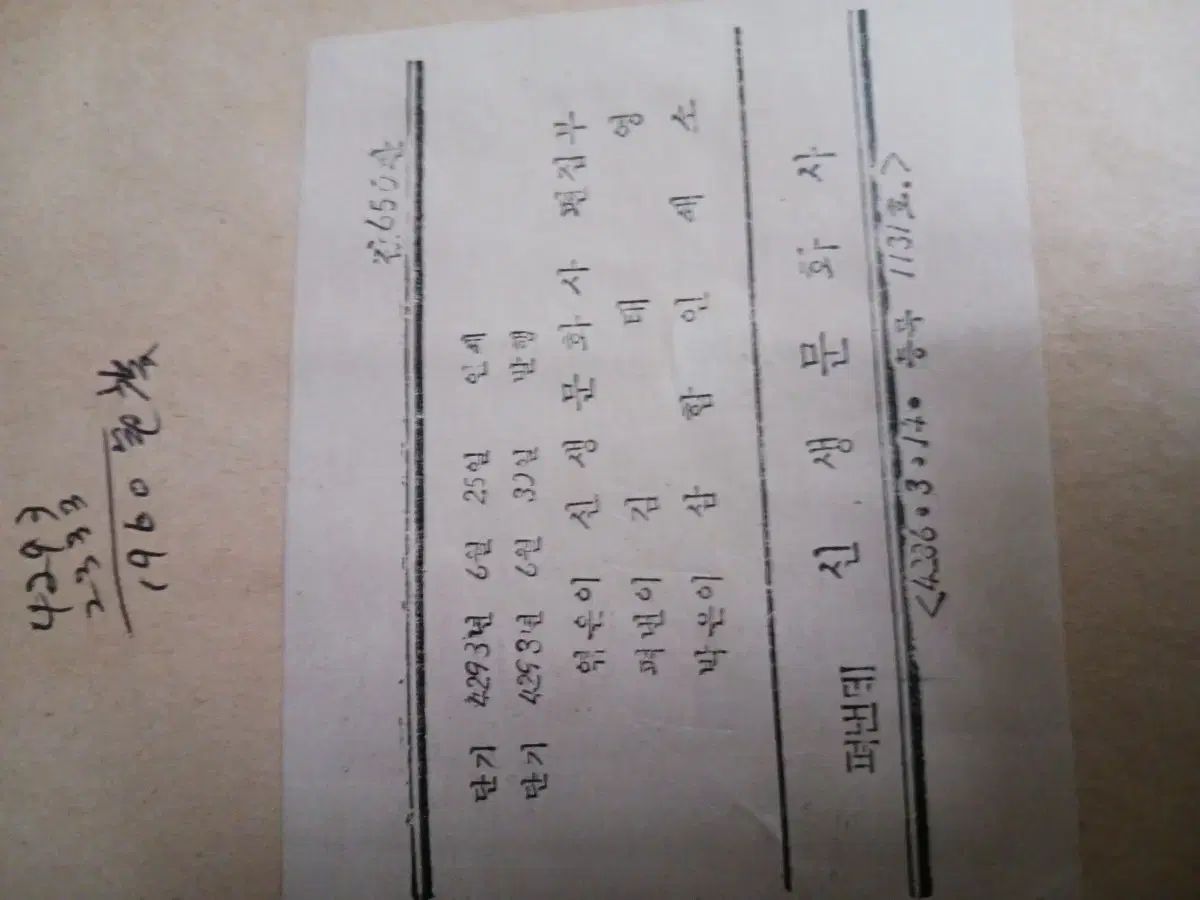 4293
2333
1960
값:650환
단기 4293년 6월 25일 인쇄
단기 4293년 6월 30일 발행
엮은이 신생문화사 편집부
펴낸이 김태영
박은이 삼합인쇄소
펴낸데 신생문화사
<4286.3.17. 등록 1131호.>